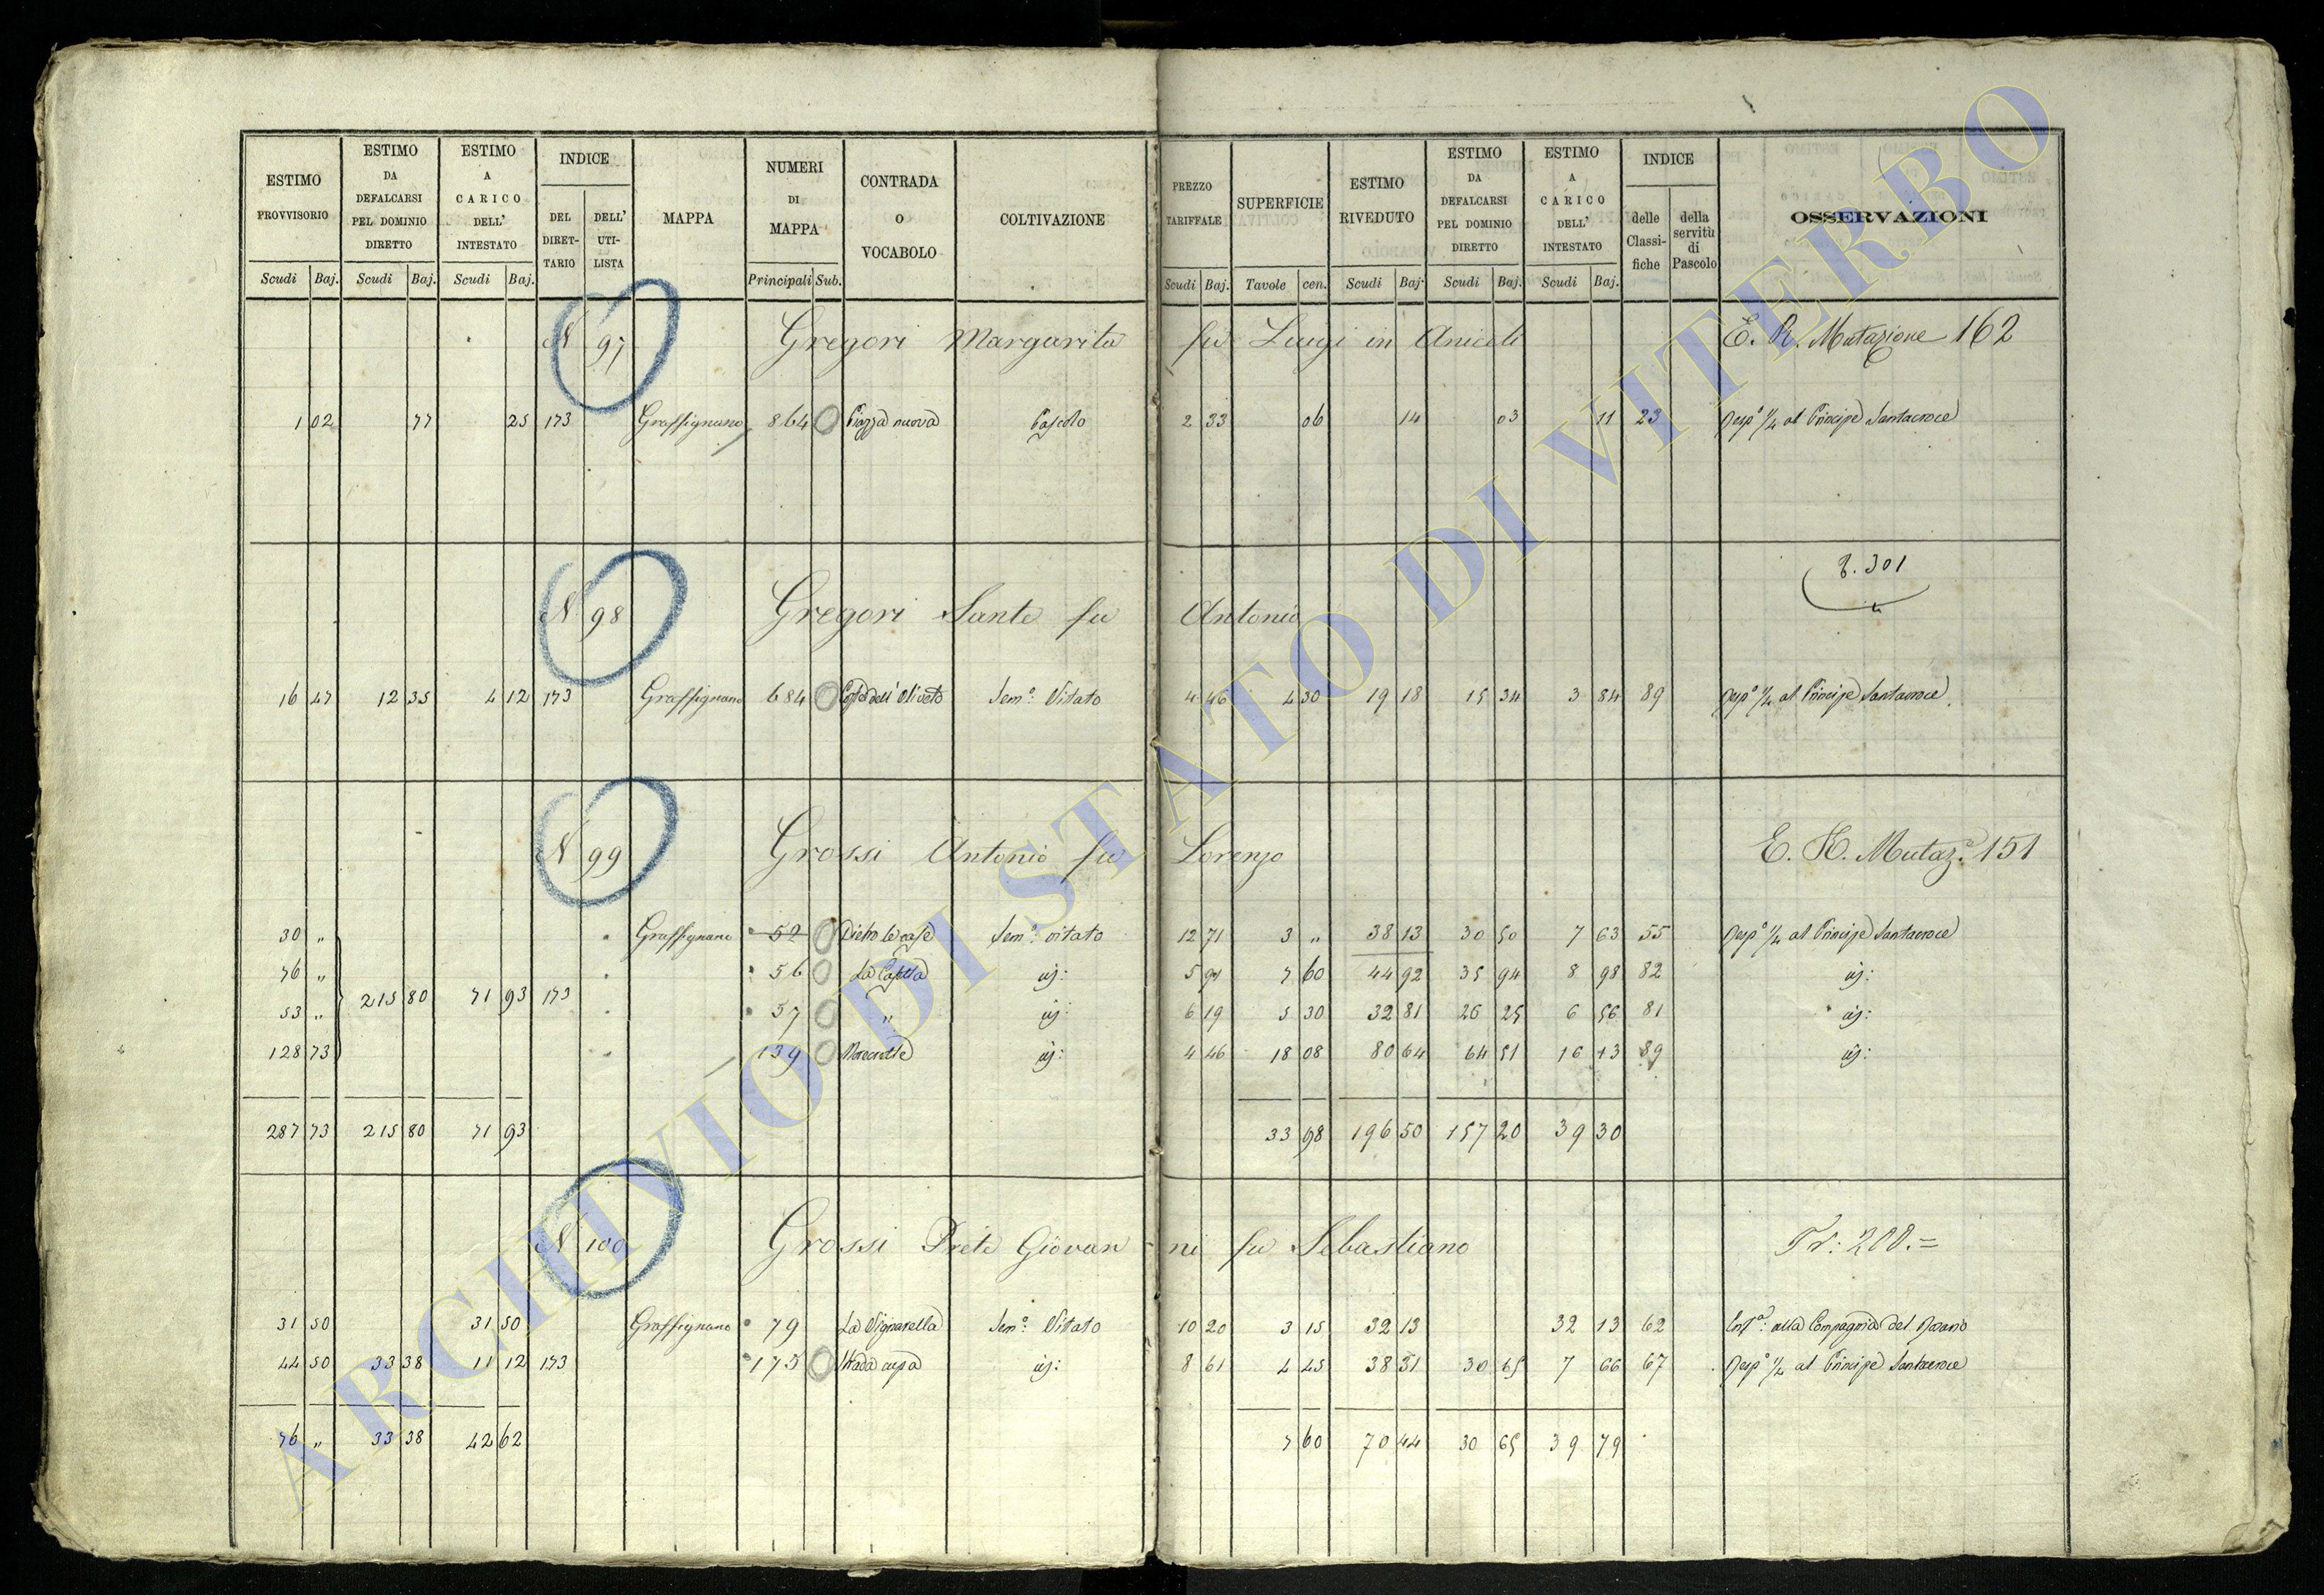 ESTIMO PROVVISORIO | ESTIMO DA DEFALCARSI PEL DOMINIO DIRETTO | ESTIMO A CARICO DELL' INTESTATO | INDICE DEL DIRETTARIO | DELL' UTILISTA | MAPPA | NUMERI DI MAPPA | CONTRADA O VOCABOLO | COLTIVAZIONE | PREZZO TARIFFALE | SUPERFICIE | ESTIMO RIVEDUTO | ESTIMO DA DEFALCARSI PEL DOMINIO DIRETTO | ESTIMO A CARICO DELL' INTESTATO | INDICE delle Classifiche | della servitù di Pascolo | OSSERVAZIONI
Scudi Baj. Scudi Baj. Scudi Baj. Principali Sub. Scudi Baj. Tavole cen. Scudi Baj. Scudi Baj. Scudi Baj.
N 97 Gregori Margarita fu Luigi in Aniceti E. R. Mutazione 162
1 02 77 25 173 Graffignano 864 Piazza nuova Pascolo 2 33 06 14 03 11 23 Risp.ª 1/4 al Principe Santacroce
T. 301
N 98 Gregori Sante fu Antonio
16 47 12 35 4 12 173 Graffignano 684 Costa dell'Oliveto Sem.º Vitato 4 46 4 30 19 18 15 34 3 84 89 Risp.ª 1/4 al Principe Santacroce
N 99 Grossi Antonio fu Lorenzo E. R. Mutaz.e 151
30 " Graffignano 52 Dietro le case Sem.º vitato 12 71 3 " 38 13 30 50 7 63 55 Risp.ª 1/4 al Principe Santacroce
76 " 56 La Casetta id: 5 91 7 60 44 92 35 94 8 98 82 id:
215 80 71 93 173
53 " 57 " id: 6 19 5 30 32 81 26 25 6 56 81 id:
128 73 139 id: 4 46 18 08 80 64 64 51 16 13 89 id:
287 73 215 80 71 93 33 98 196 50 157 20 39 30
N 100 Grossi Prete Giovanni fu Sebastiano Tr: 208.=
31 50 31 50 Graffignano 79 La Vignarella Sem.º Vitato 10 20 3 15 32 13 32 13 62 alla Compagnia del
44 50 33 38 11 12 173 175 Strada cupa id: 8 61 4 45 38 31 30 65 7 66 67 Risp.ª 1/4 al Principe Santacroce
76 " 33 38 42 62 7 60 70 44 30 65 39 79
ARCHIVIO DI STATO DI VITERBO